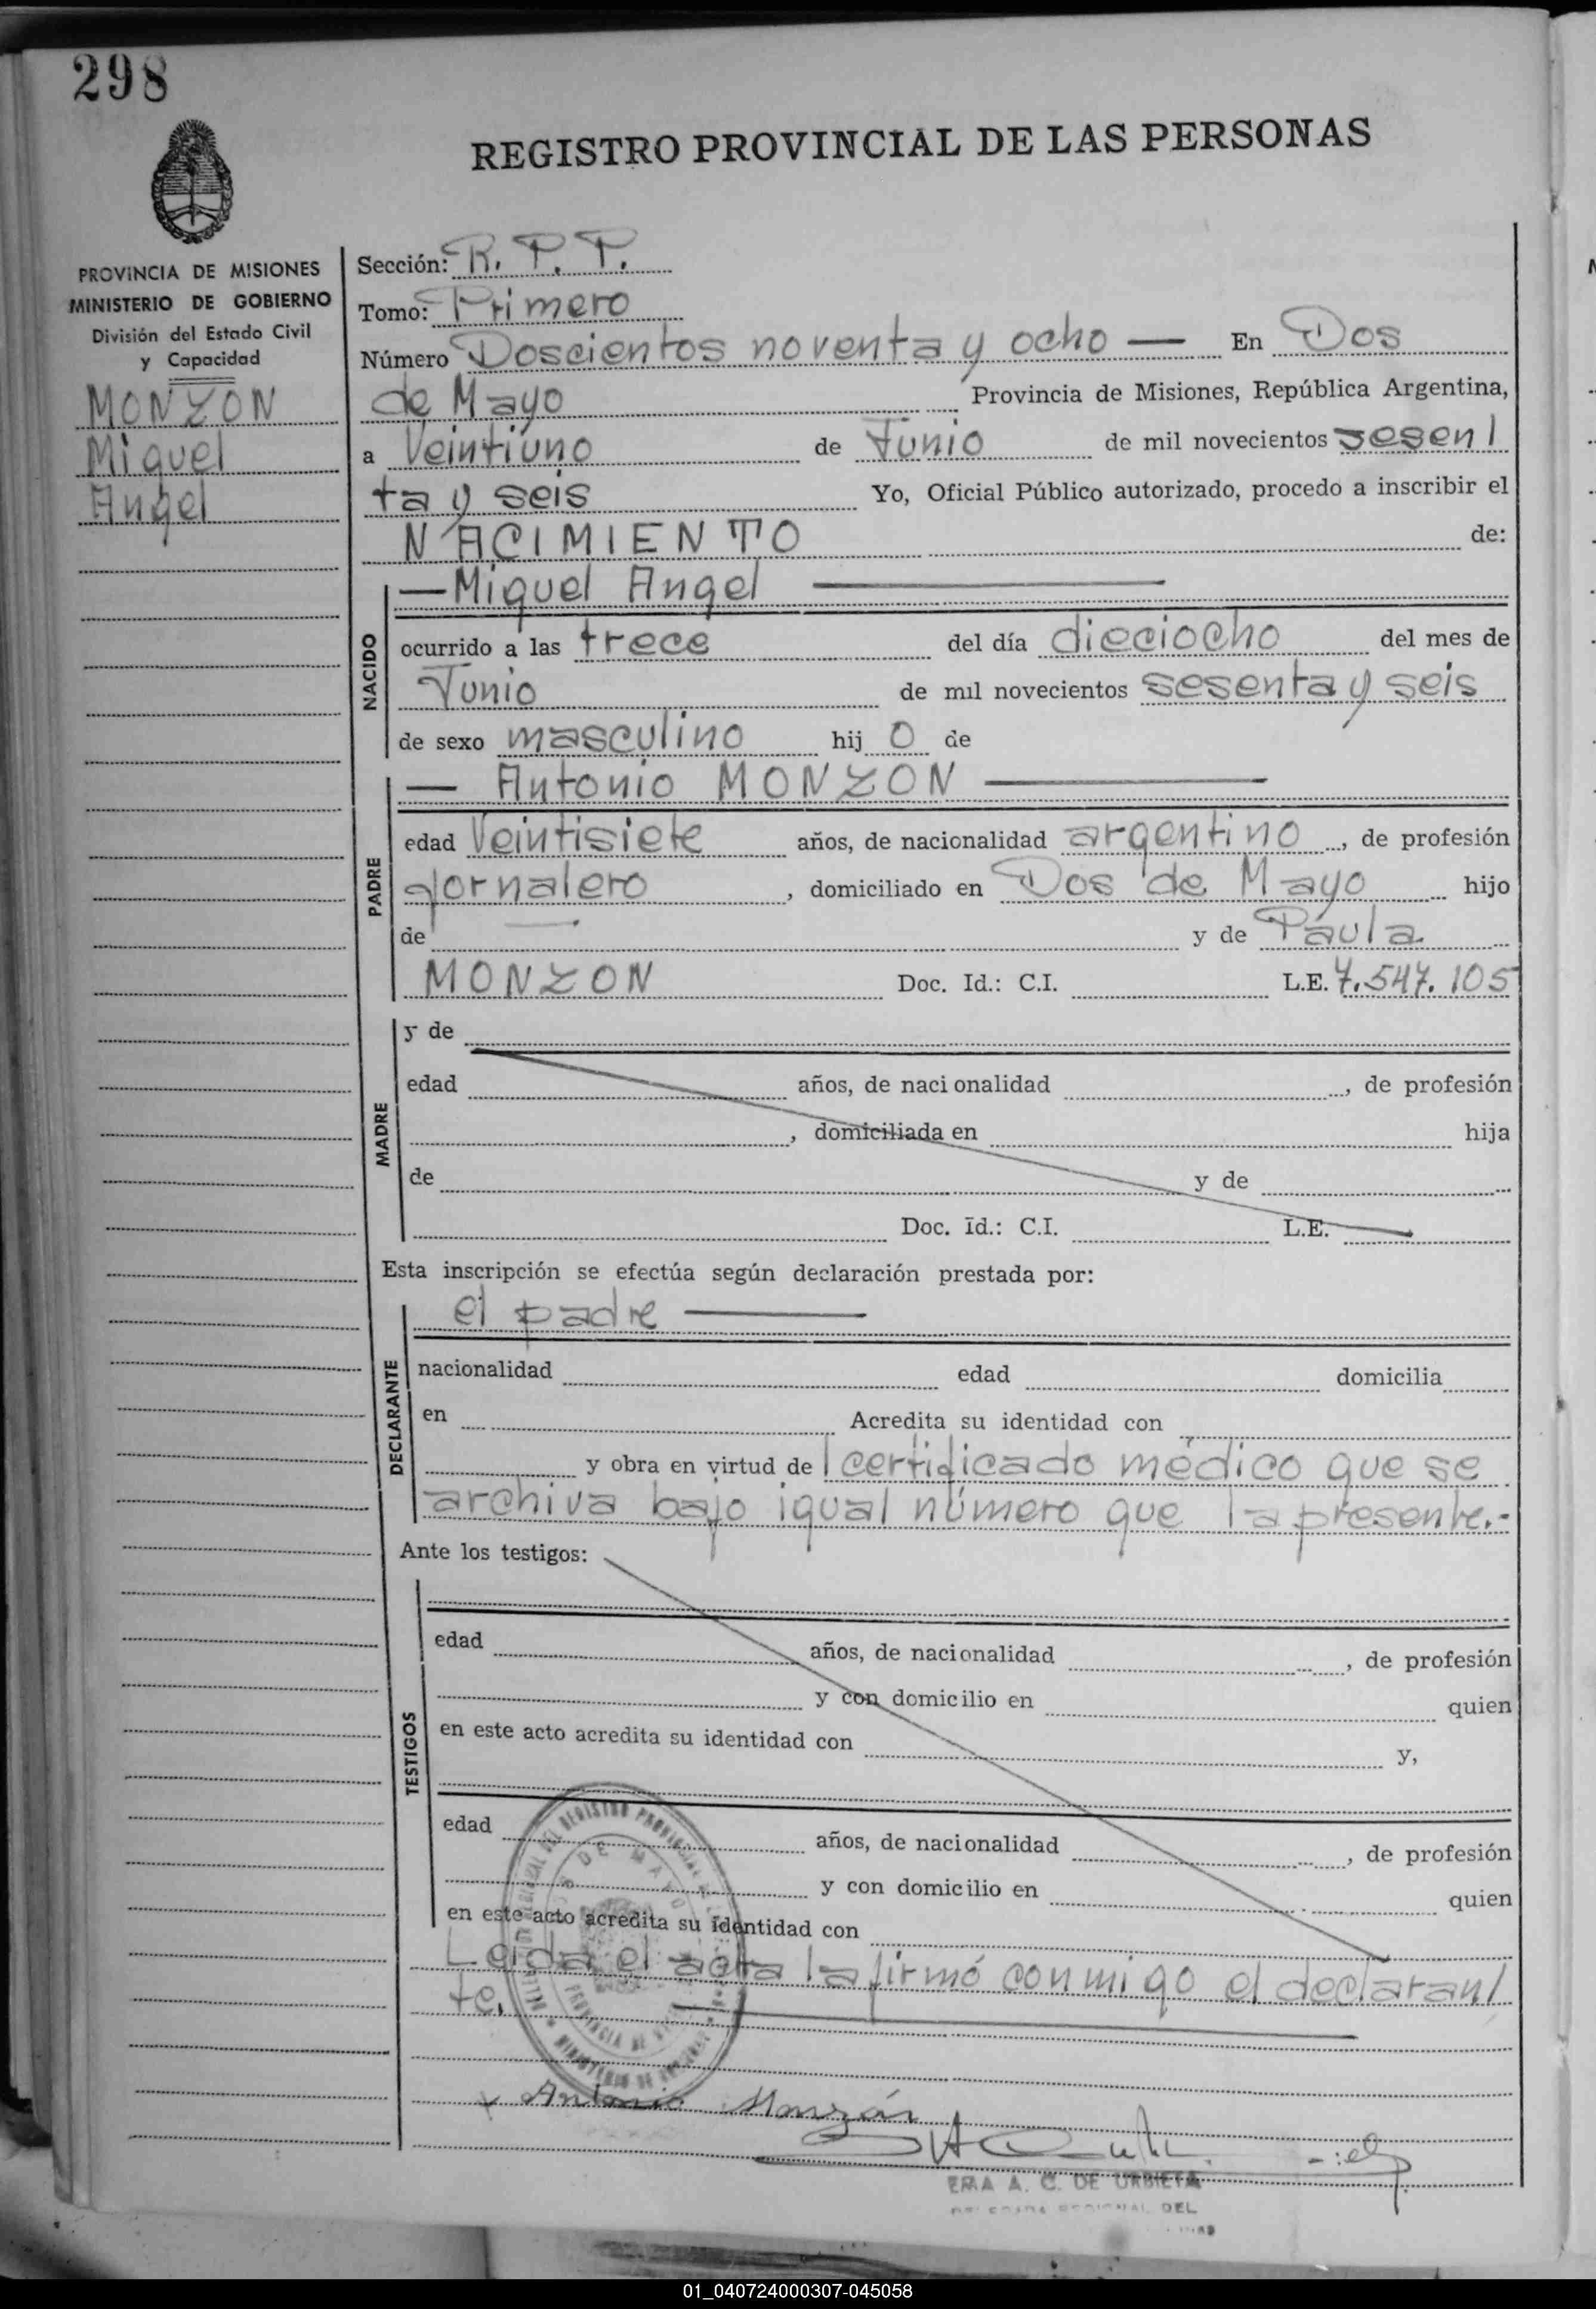 298
REGISTRO PROVINCIAL DE LAS PERSONAS
PROVINCIA DE MISIONES
MINISTERIO DE GOBIERNO
División del Estado Civil
y Capacidad
MONZON
Miguel
Angel
Sección: R. P. P.
Tomo: Primero
Número Doscientos noventa y ocho — En Dos
de Mayo Provincia de Misiones, República Argentina,
a Veintiuno de Junio de mil novecientos sesen/
ta y seis Yo, Oficial Público autorizado, procedo a inscribir el
NACIMIENTO de:
NACIDO
— Miguel Angel —
ocurrido a las trece del día dieciocho del mes de
Junio de mil novecientos sesenta y seis
de sexo masculino hij o de
PADRE
— Antonio MONZON —
edad Veintisiete años, de nacionalidad argentino, de profesión
Jornalero, domiciliado en Dos de Mayo hijo
de — y de Paula
MONZON Doc. Id.: C.I. L.E. 7.547.105
MADRE
y de
edad años, de nacionalidad, de profesión
, domiciliada en hija
de y de
Doc. Id.: C.I. L.E.
Esta inscripción se efectúa según declaración prestada por:
DECLARANTE
el padre —
nacionalidad edad domicilia
en Acredita su identidad con
y obra en virtud de l certificado médico que se
archiva bajo igual número que la presente.-
Ante los testigos:
TESTIGOS
edad años, de nacionalidad, de profesión
y con domicilio en quien
en este acto acredita su identidad con y,
edad años, de nacionalidad, de profesión
y con domicilio en quien
en este acto acredita su identidad con
Leida el acta la firmó conmigo el declaran/
te.
Antonio Monzón
A. C. DE URBIETA
DEL
01_040724000307-045058